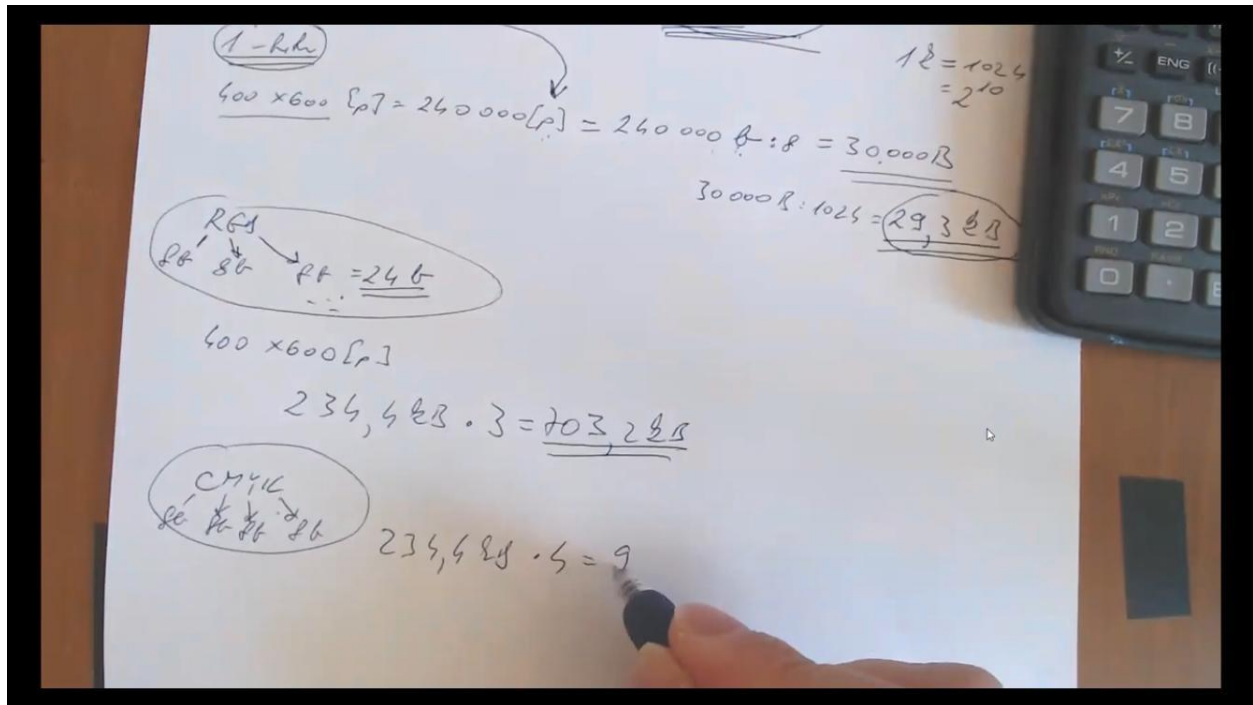 1 k = 1024
= 2¹⁰
400 × 600 [p] = 240 000 [p] = 240 000 b : 8 = 30.000 B
30 000 B : 1024 = 29,3 kB
RGB
8b 8b 8b = 24 b
400 × 600 [p]
234,4 kB · 3 = 703,2 kB
CMYK
8b 8b 8b 8b
234,4 kB · 4 = 9
+/- ENG
7 8
4 5
1 2
0 ·